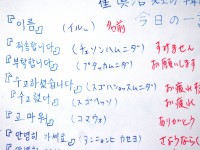 今日の一
『이름』 (イルム) 名前
『죄송합니다』 (チェソンハムニダ) すみません
『부탁합니다』 (プタカムニダ) お願いします
『수고하셨습니다』 (スゴハショッスムニダ) お疲れ
『수고했어』 (スゴヘッソ) お疲れ
『고마워』 (コマウォ) ありがとう
『안녕히 가세요』 (アンニョンヒ カセヨ) さようなら(